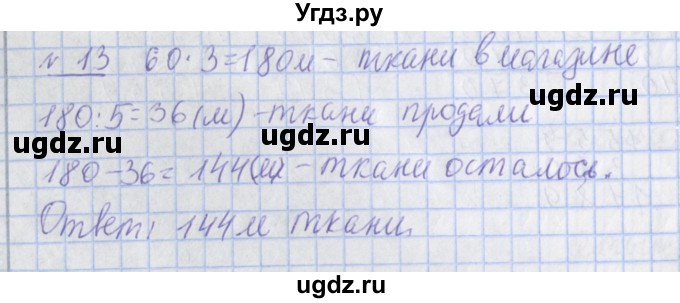 Угдз.ру
№ 13 60·3=180м - ткани в магазине
180:5=36(м) - ткани продали
ugdz.ru ugdz.ru
ugdz.ru
180-36=144(м) - ткани осталось.
ugdz.ru ugdz.ru
Ответ: 144м ткани.
ugdz.ru